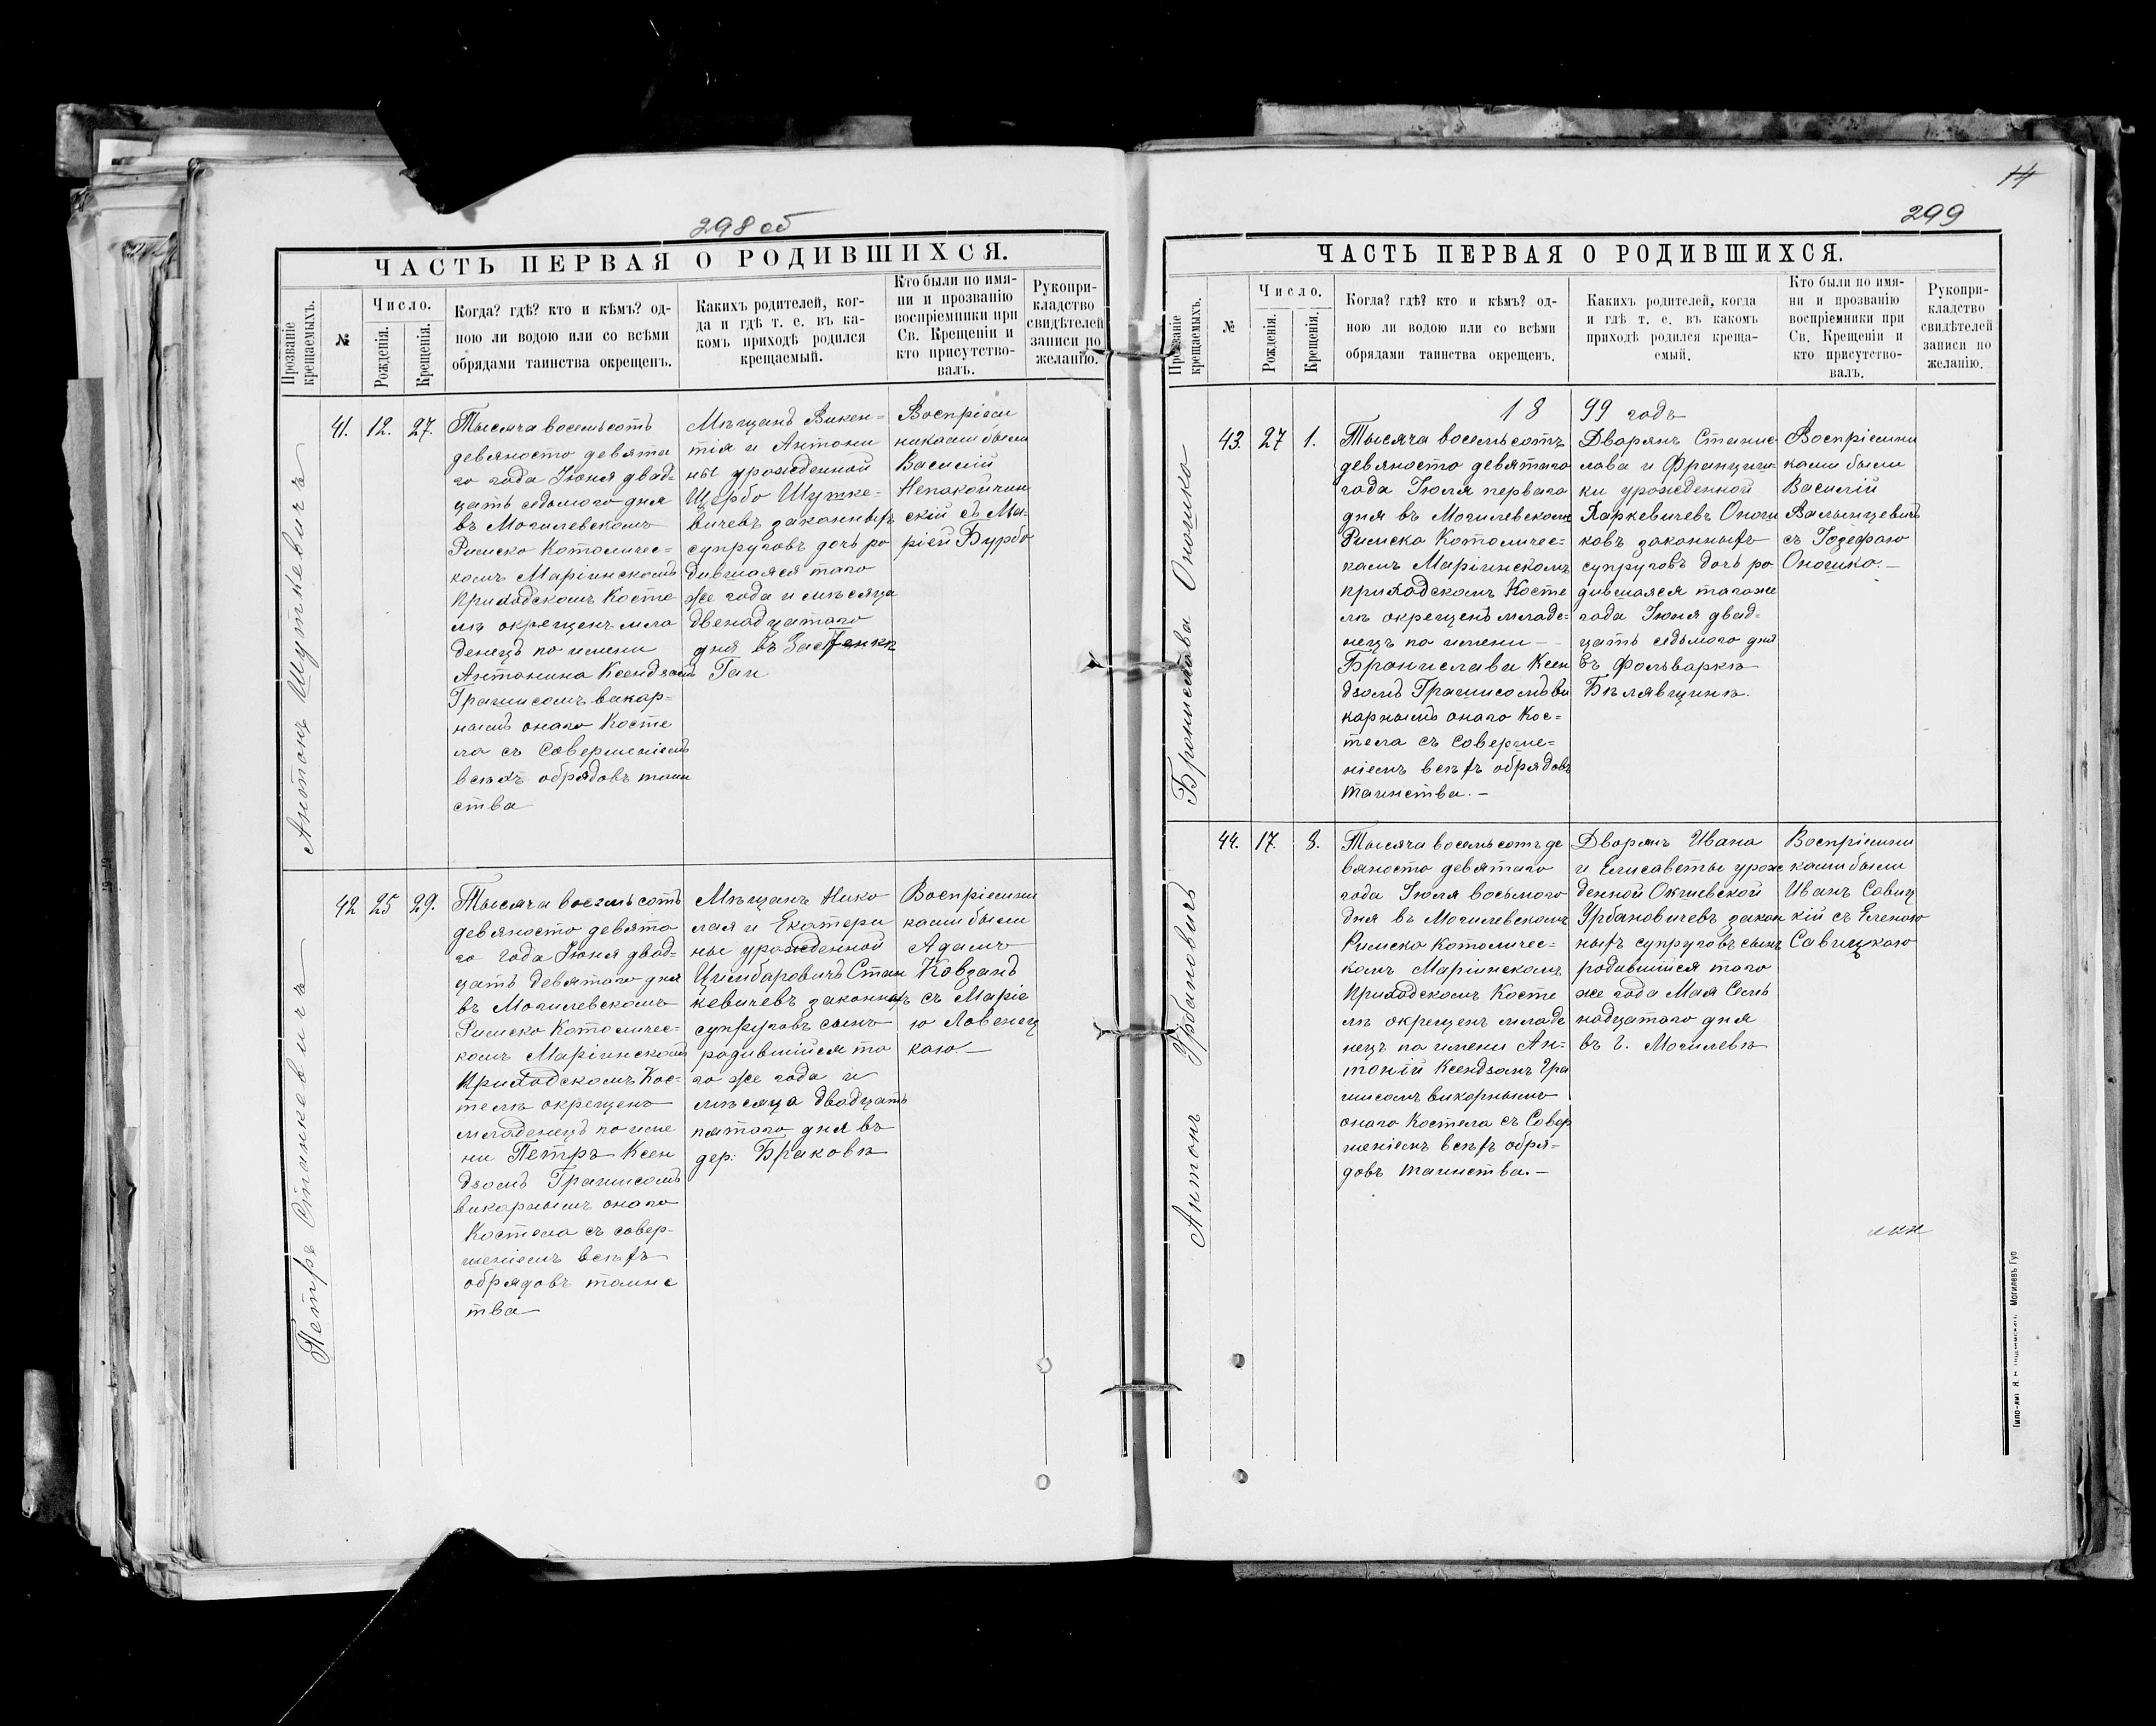 298 об
ЧАСТЬ ПЕРВАЯ О РОДИВШИХСЯ.
Прозваніе крещаемыхъ.
№
Число.
Рожденія.
Крещенія.
Когда? гдѣ? кто и кѣмъ? од-
ною ли водою или со всѣми
обрядами таинства окрещенъ.
Какихъ родителей, ког-
да и гдѣ т. е. въ ка-
комъ приходѣ родился
крещаемый.
Кто были по имя-
ни и прозванію
воспріемники при
Св. Крещеніи и
кто присутство-
валъ.
Рукопри-
кладство
свидѣтелей
записи по
желанію.
Антонъ Шуткевичъ
41. 12. 27.
Тысяча восемьсотъ
девяносто девята
го года Іюня двад-
цать седьмого дня
въ Могилевскомъ
Римско Католичес-
комъ Маріинскомъ
приходскомъ Косте
лѣ окрещенъ мла
денецъ по имени
Антонина Ксендзомъ
Грамисомъ викар-
нымъ онаго Косте
ла съ Совершеніемъ
всѣхъ обрядовъ таин
ства
Мѣщанъ Викен-
тія и Антони
ны урожденной
Щербо Шутке-
вичевъ законныхъ
супруговъ дочь ро
дившаяся того
же года и мѣсяца
двенадцатого
дня въ Застенкѣ
Гаи
Воспріем
никами были
Василій
Непокойчин
скій съ Ма-
ріей Бурбо
Петръ Станкевичъ
42 25 29.
Тысяча восемьсотъ
девяносто девято
го года Іюня двад-
цать девятого дня
въ Могилевскомъ
Римско Католичес-
комъ Маріинскомъ
Приходскомъ Кос-
телѣ окрещенъ
младенецъ по име
ни Петръ Ксен
дзомъ Грамисомъ
викарнымъ онаго
Костела съ совер-
шеніемъ всѣхъ
обрядовъ таинс
тва
Мѣщанъ Нико
лая и Екатери
ны урожденной
Цимбаровичъ Стан
кевичевъ законныхъ
супруговъ сынъ
родившійся то
го же года и
мѣсяца двадцать
пятого дня въ
дер: Браковѣ
Воспріемни
ками были
Адамъ
Ковзанъ
съ Маріе
ю Ловенец
кою.—
14
299
ЧАСТЬ ПЕРВАЯ О РОДИВШИХСЯ.
Прозваніе крещаемыхъ.
№
Число.
Рожденія.
Крещенія.
Когда? гдѣ? кто и кѣмъ? од-
ною ли водою или со всѣми
обрядами таинства окрещенъ.
Какихъ родителей, когда
и гдѣ т. е. въ какомъ
приходѣ родился креща-
емый.
Кто были по имя-
ни и прозванію
воспріемники при
Св. Крещеніи и
кто присутство-
валъ.
Рукопри-
кладство
свидѣтелей
записи по
желанію.
1899 годъ
Бронислава Оношко
43. 27 1.
Тысяча восемьсотъ
девяносто девятаго
года Іюля перваго
дня въ Могилевскомъ
Римско Католичес-
комъ Маріинскомъ
приходскомъ Косте
лѣ окрещенъ младе-
нецъ по имени —
Бронислава Ксен
дзомъ Грамисомъ ви
карнымъ онаго Кос-
тела съ соверше-
ніемъ всѣхъ обрядовъ
таинства.—
Дворянъ Станис
лава и Францишки
урожденной
Харкевичевъ Онош
ковъ законныхъ
супруговъ дочь ро
дившаяся тогоже
года Іюня двад-
цать седьмого дня
въ фольваркѣ
Бѣлявщинѣ.
Воспріемни
ками были
Василій
Валынцевичъ
съ Іозефою
Оношко.—
Антонъ Урбановичъ
44. 17. 8.
Тысяча восемьсотъ де
вяносто девятаго
года Іюля восьмого
дня въ Могилевскомъ
Римско Католичес-
комъ Маріинскомъ
Приходскомъ Косте
лѣ окрещенъ младе
нецъ по имени Ан-
тоній Ксендзомъ Гра
мисомъ викарнымъ
онаго Костела съ Совер
шеніемъ всѣхъ обря-
довъ таинства.—
Дворянъ Ивана
и Елисаветы урож
денной Окшевской
Урбановичевъ закон
ныхъ супруговъ сынъ
родившійся того
же года Мая Семь
надцатого дня
въ г. Могилевѣ
Воспріемни
ками были
Иванъ Савиц
кій съ Еленою
Савицкою
Могилевъ Губ